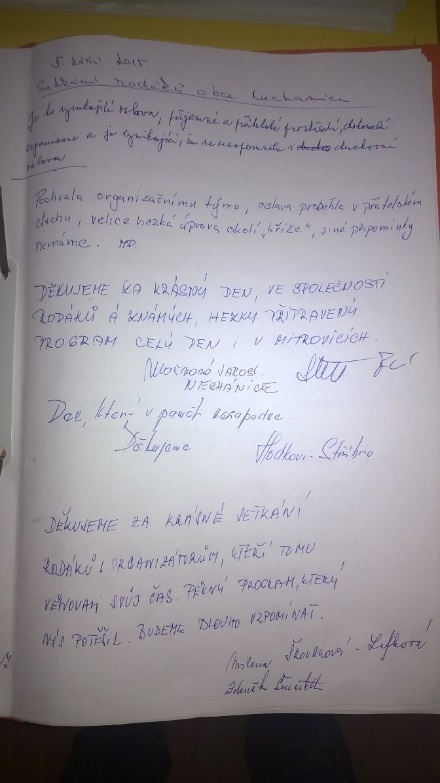 5. září 2015
Setkání rodáků obce Nechanice
Je to vynikající oslava, příjemné a přátelské prostředí, dokonalá
organizace a je vynikající, že se nezapomnělo i duchovní
oslava
Pochvala organizačnímu týmu, oslava proběhla v přátelském
duchu, velice hezká úprava okolí „kříže", jiné připomínky
nemáme.
DĚKUJEME ZA KRÁSNÝ DEN, VE SPOLEČNOSTI
RODÁKŮ A ZNÁMÝCH, HEZKY PŘIPRAVENÝ
PROGRAM CELÝ DEN I V MITROVICÍCH.
NECHANICE
Den, který v paměti nezapadne.
Děkujeme Hodkovi - Stříbro
DĚKUJEME ZA KRÁSNÉ SETKÁNÍ
RODÁKŮ I ORGANIZÁTORŮM, KTEŘÍ TOMU
VĚNOVALI SVŮJ ČAS. PĚKNÝ PROGRAM, KTERÝ
NÁS POTĚŠIL. BUDEME DLOUHO VZPOMÍNAT.
Milena
Zdeněk